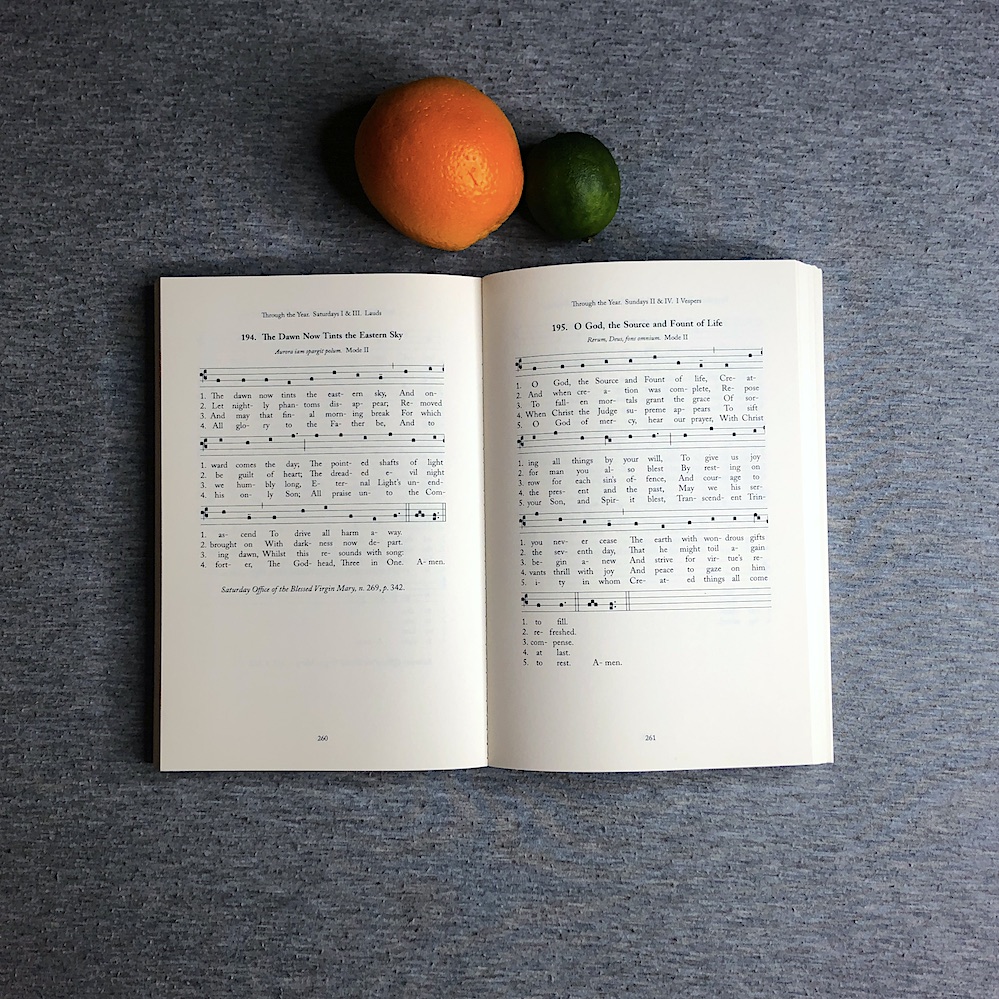 Through the Year. Saturdays I & III. Lauds
194. The Dawn Now Tints the Eastern Sky
Aurora iam spargit polum. Mode II
1. The dawn now tints the east- ern sky, And on-
2. Let night- ly phan- toms dis- ap- pear; Re- moved
3. And may that fin- al morn- ing break For which
4. All glo- ry to the Fa- ther be, And to
1. ward comes the day; The point- ed shafts of light
2. be guilt of heart; The dread- ed e- vil night
3. we hum- bly long, E- ter- nal Light's un- end-
4. his on- ly Son; All praise un- to the Com-
1. as- cend To drive all harm a- way.
2. brought on With dark- ness now de- part.
3. ing dawn, Whilst this re- sounds with song:
4. fort- er, The God- head, Three in One. A- men.
Saturday Office of the Blessed Virgin Mary, n. 269, p. 342.
260
Through the Year. Sundays II & IV. I Vespers
195. O God, the Source and Fount of Life
Rerum, Deus, fons omnium. Mode II
1. O God, the Source and Fount of life, Cre- at-
2. And when cre- a- tion was com- plete, Re- pose
3. To fall- en mor- tals grant the grace Of sor-
4. When Christ the Judge su- preme ap- pears To sift
5. O God of mer- cy, hear our prayer, With Christ
1. ing all things by your will, To give us joy
2. for man you al- so blest By rest- ing on
3. row for each sin's of- fence, And cour- age to
4. the pres- ent and the past, May we his ser-
5. your Son, and Spir- it blest, Tran- scend- ent Trin-
1. you nev- er cease The earth with won- drous gifts
2. the sev- enth day, That he might toil a- gain
3. be- gin a- new And strive for vir- tue's re-
4. vants thrill with joy And peace to gaze on him
5. i- ty in whom Cre- at- ed things all come
1. to fill.
2. re- freshed.
3. com- pense.
4. at last.
5. to rest. A- men.
261